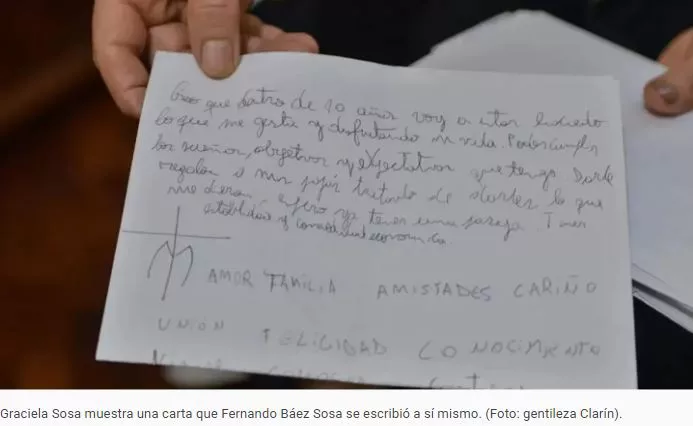 Creo que dentro de 10 años voy a estar haciendo
lo que me gusta y disfrutando mi vida. Poder cumplir
los sueños, objetivos y expectativas que tengo. Darle
regalos a mis papás tratando de darles lo que
me dieron, espero ya tener una pareja. Tener
estabilidad y comodidad economica.
AMOR FAMILIA AMISTADES CARIÑO
UNIÓN FELICIDAD CONOCIMIENTO
Graciela Sosa muestra una carta que Fernando Báez Sosa se escribió a sí mismo. (Foto: gentileza Clarín).